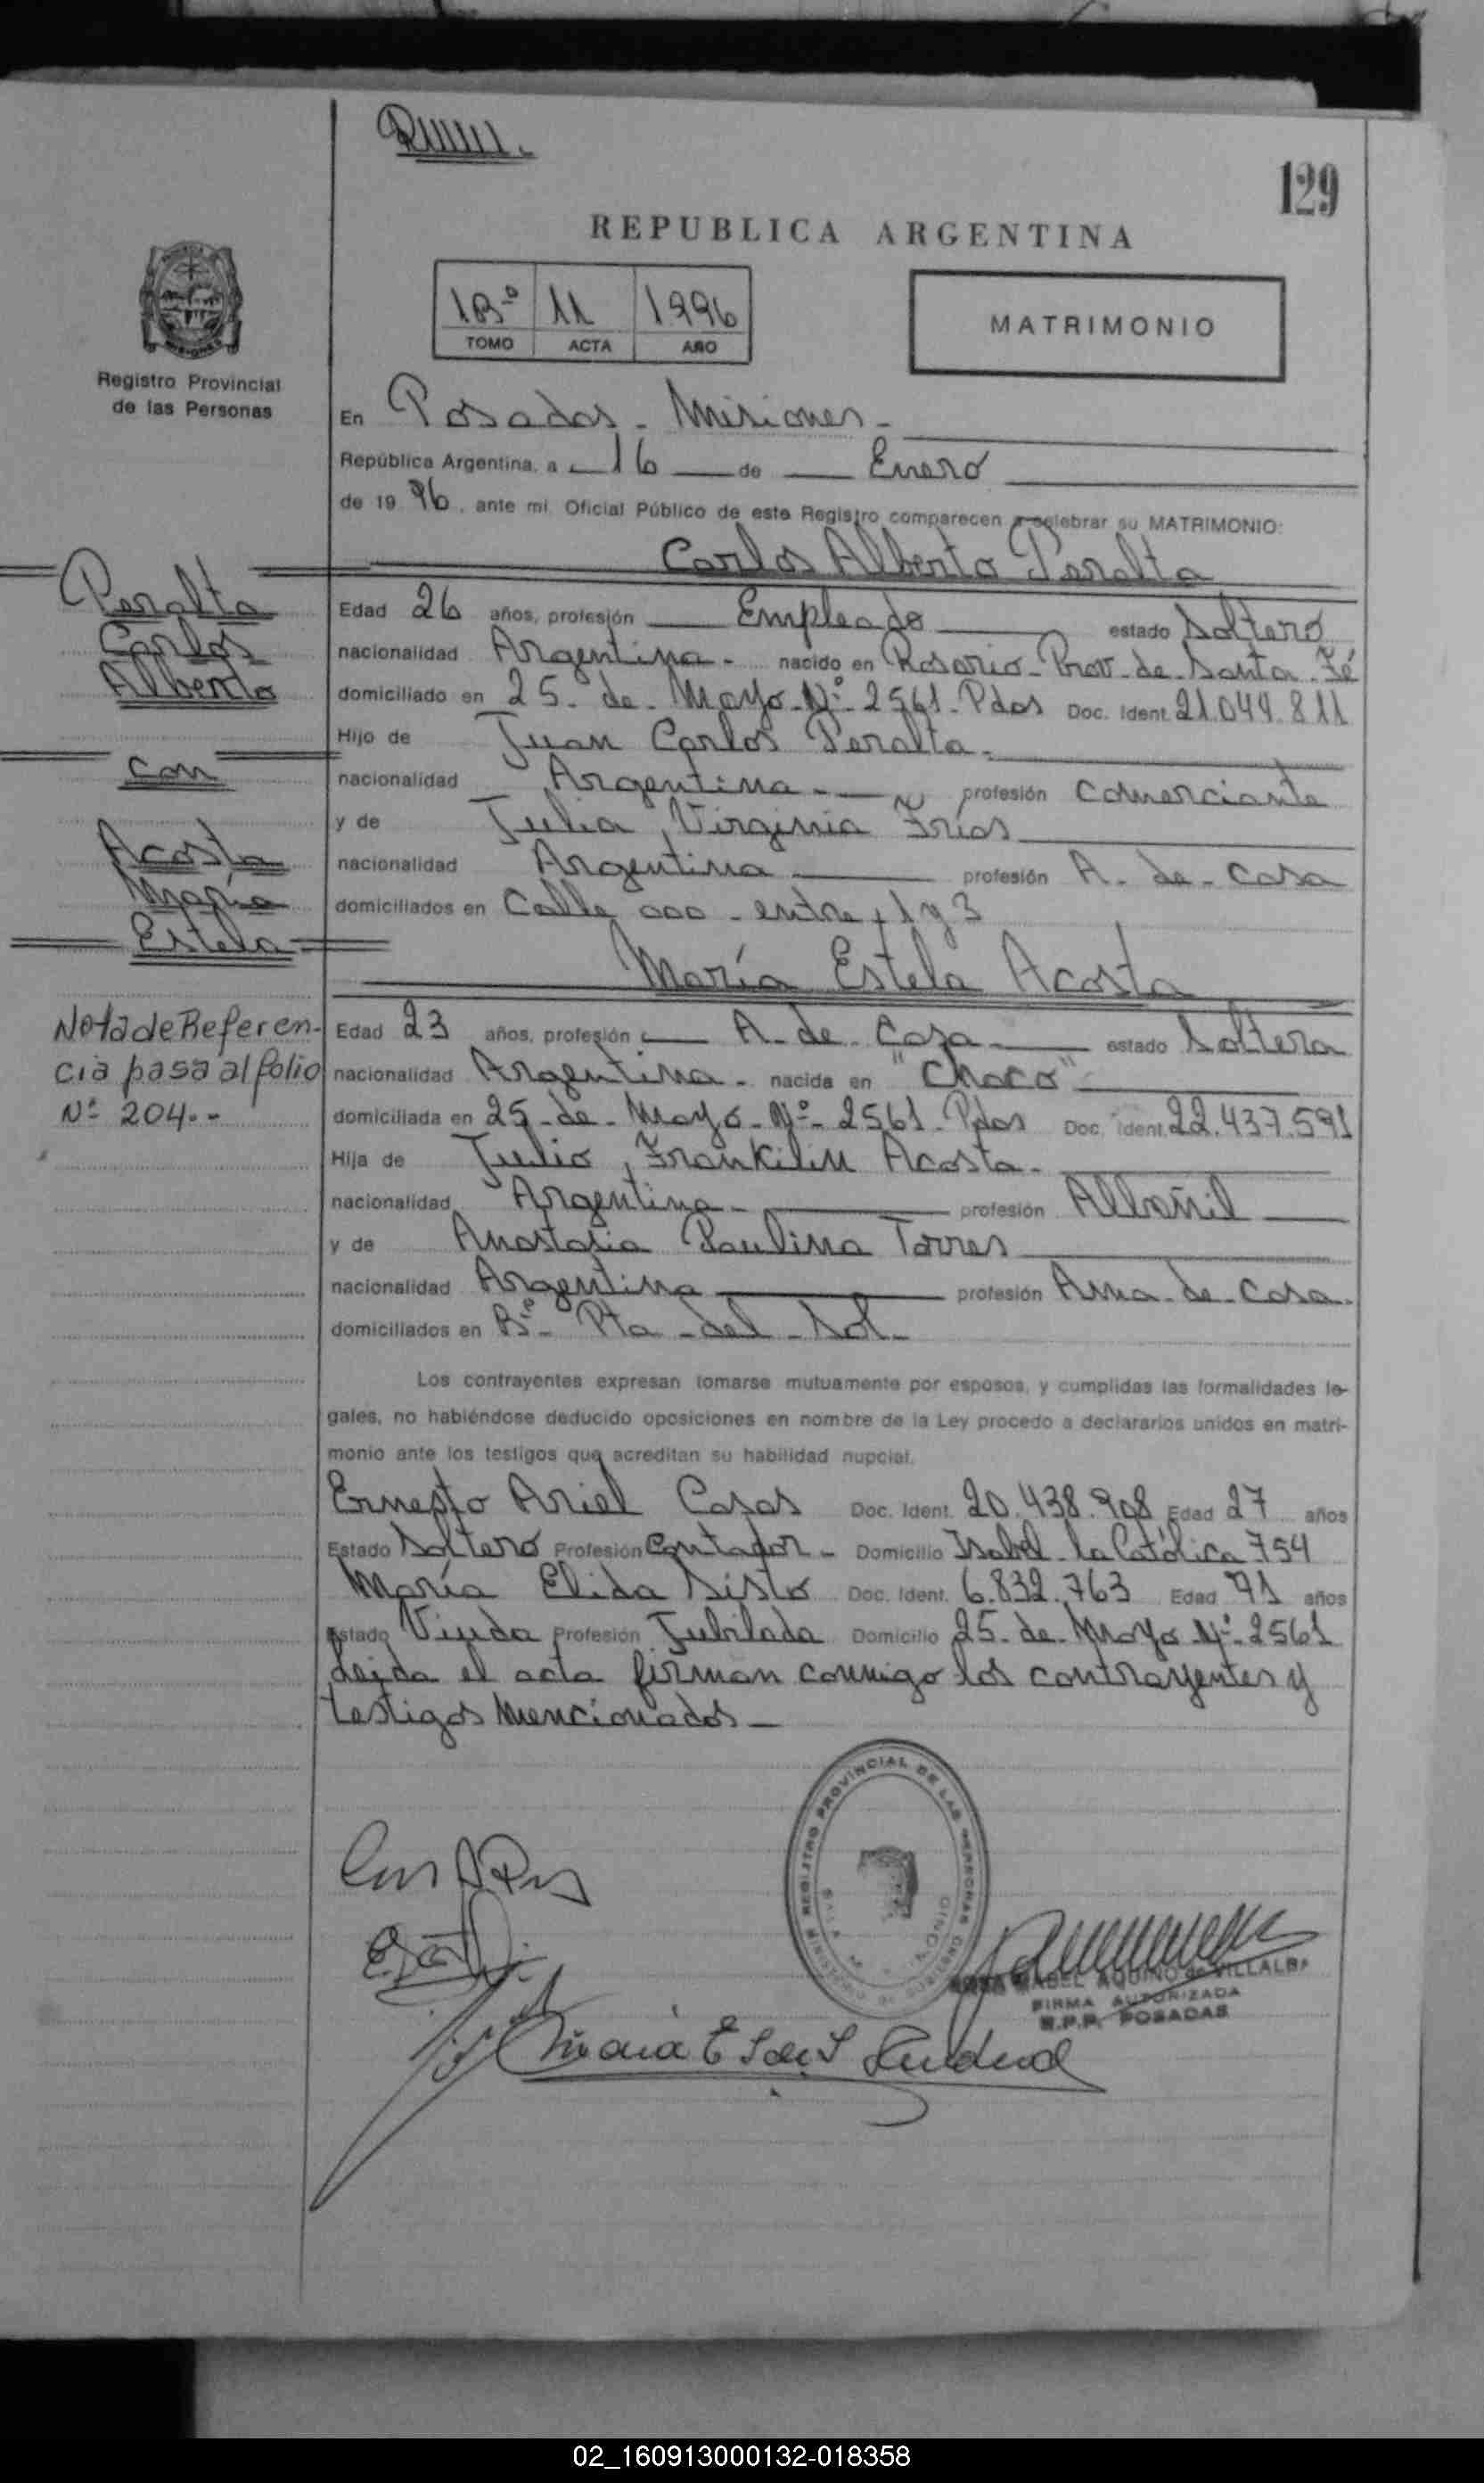 129
REPUBLICA ARGENTINA
1Bº 11 1996
TOMO ACTA AÑO
MATRIMONIO
Registro Provincial
de las Personas
En Posadas - Misiones -
República Argentina, a 16 de Enero
de 19 96, ante mi, Oficial Público de este Registro comparecen a celebrar su MATRIMONIO:
Carlos Alberto Peralta
Peralta
Carlos
Alberto
con
Acosta
María
Estela
Nota de Referen-
cia pasa al folio
Nº 204.-
Edad 26 años, profesión Empleado estado Soltero
nacionalidad Argentina - nacido en Rosario - Prov - de - Santa - Fé
domiciliado en 25 - de - Mayo - Nº - 2561 - Pdas Doc. Ident. 21.044.811
Hijo de Juan Carlos Peralta -
nacionalidad Argentina - profesión Comerciante
y de Julia, Virginia Frías
nacionalidad Argentina profesión A. de - casa
domiciliados en Calle 000 - entre 1 y 3
María Estela Acosta
Edad 23 años, profesión A. de - Casa estado Soltera
nacionalidad Argentina - nacida en "Chaco"
domiciliada en 25 - de - Mayo - Nº - 2561 - Pdas Doc. Ident. 22.437.591
Hija de Julio, Frankilin Acosta -
nacionalidad Argentina - profesión Albañil
y de Anastasia Paulina Torres
nacionalidad Argentina profesión Ama - de - casa -
domiciliados en Bº - Pta - del - Sol -
Los contrayentes expresan tomarse mutuamente por esposos, y cumplidas las formalidades le-
gales, no habiéndose deducido oposiciones en nombre de la Ley procedo a declararlos unidos en matri-
monio ante los testigos que acreditan su habilidad nupcial.
Ernesto Ariel Casas Doc. Ident. 20.438.908 Edad 27 años
Estado Soltero Profesión Contador - Domicilio Isabel la Católica 754
María Elida Sisto Doc. Ident. 6.832.763 Edad 71 años
Estado Viuda Profesión Jubilada Domicilio 25 - de - Mayo Nº - 2561
Leida el acta firman conmigo los contrayentes y
testigos mencionados -
REGISTRO PROVINCIAL DE LAS PERSONAS
AQUINO de VILLALBA
FIRMA AUTORIZADA
R.P.P. POSADAS
02_160913000132-018358